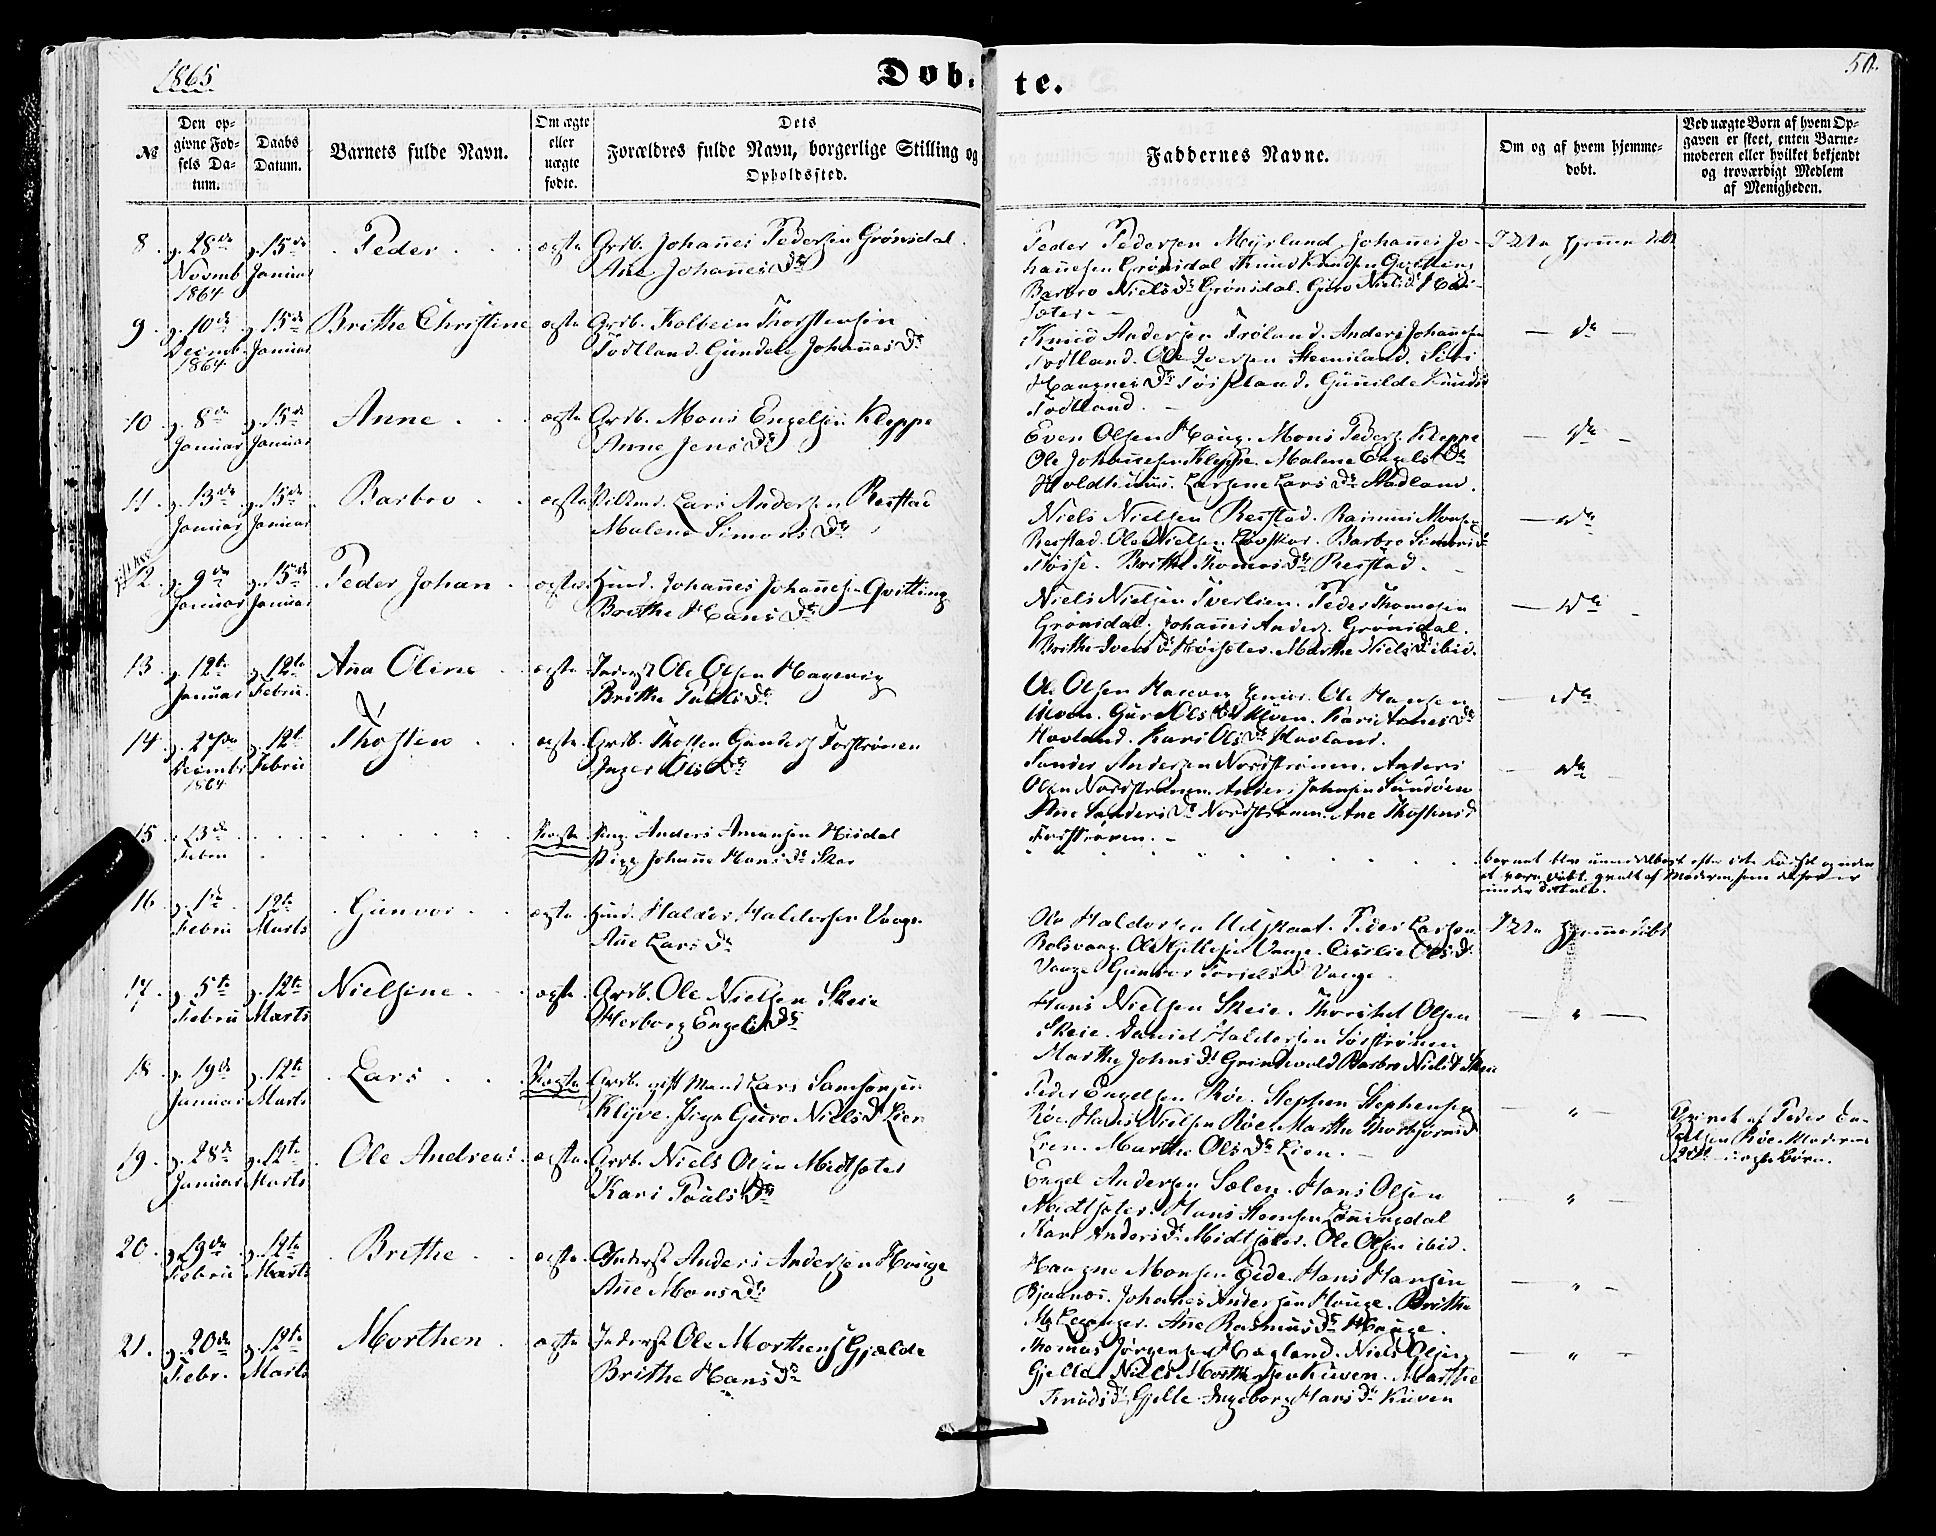 1865
Døb. te.
50.
№
Den opgivne Fødsels Datum.
Daabs Datum.
Barnets fulde Navn.
Om ægte eller uægte fødte.
Dets
Forældres fulde Navn, borgerlige Stilling og
Opholdssted.
Faddernes Navne.
Om og af hvem hjemmedøbt.
Ved uægte Børn af hvem Opgaven er skeet, enten Barnemoderen eller hvilket bekjendt og troværdigt Medlem af Menigheden.
8. d. 28de Novmb 1864 d. 15de Januar Peder ægte Grdb. Johanes Pedersen Grønsdal.
Ane Johanes Dr
Peder Pedersen Myrlund Johanes Johanesen Grønsdal Knud Knudsen Qvitting
Barbro Niels Dr Grønsdal. Guro Niels Dr
Ikke hjemmedøbt
9. d. 10de Decmb. 1864 d. 15de Januar Brithe Christine ægte Grdb. Kolbein Thorstensen
Todtland. Gundele Johanes Dr
Knud Andersen Frøland. Anders Johanesen
Todtland. Ole Iversen Steensland. Siri
Haagnes Dr Tøsseland. Gunilde Knuds
Todtland.
— do —
10 d. 8de Januar d. 15de Januar Anne ægte Grdb. Mons Engelsen Kleppe
Anne Jens Dr
Even Olsen Haug. Mons Peders. Kleppe
Ole Johanesen Kleppe. Malene Engels Dr
Holdhuus. Larsine Lars Dr Hadland.
— do —
11 d. 13de Januar d. 15de Januar Barbro ægte Lars Andersen Resstad
Malene Simons Dr
Niels Nielsen Resstad. Rasmus Monsen
Resstad. Ole Nielsen Løvskar. Barbro Simons Dr
Brithe Thomas Dr Resstad.
— do
12 d. 9de Januar d. 15de Januar Peder Johan ægte Huusmd. Johanes Johanesen Qvitting
Brithe Hans Dr
Niels Nielsen Tverlien. Peder Thomesen
Grønsdal. Johanes Anders. Grønsdal.
Brithe Ivers Dr Høisæter. Marthe Niels Dr ibid.
— do —
13 d. 12te Januar d. 12te Febru Aña Oline ægte Inderst Ole Olsen Hagevig
Brithe Pouls Dr
Ole Olsen Hagevig senior. Ole Hansen
Moen. Guro Ols Dr Moen. Kari Tones Dr
Hovland. Kari Ols Dr Hovland.
— do
14 d. 27de Decembr 1864 d. 12te Febru Thosten ægte Grdb. Thosten Gunders Forstrønen
Inger Ols Dr
Sander Andersen Nordstrønen. Anders
Olsen Nordstrønen. Anders Johnsen Sundøen
Ane Sanders Dr Nordstrønen. Ane Thostens Dr
Forstrønen.
— do —
15 d. 13de Febru Uægte Ung. Anders Amunsen Risdal
Pige Johane Hans Dr Skar
barnet blev umiddelbart efter sin Fødsel og uden
at være døbt qvalt af Moderen, som derfor er
under Tiltale.
16 d. 1ste Febru 12te Marts Gunvor ægte Huusmd. Haldor Haldorsen Vaage
Ane Lars Dr
Ole Haldorsen Peder Larsen
Bolsvaag. Ole Vaage. Cicilie Ols Dr
Vaage Gunvor Torjels Dr Vaage.
Ikke hjemmedøbt
17. d. 5te Febru d. 12te Marts Nielsine ægte Grdb. Ole Nielsen Skeie
Herborg Engels Dr
Hans Nielsen Skeie. Thorstel Olsen
Skeie. Daniel Haldorsen Sørstrønen
Marthe Johns Dr Grindevold Barbro Niels Dr Skeie
— " —
18 d. 19de Januar d. 12te Marts Lars Uægte Grdb. gift Mand Lars Samsonsen
Klyve. Pige Guro Niels Dr Lien
Peder Engelsen Røe. Steffen Stephensen
Røe Hans Nielsen Røe Marthe Thorbjørns Dr
Lien. Marthe Ols Dr Lien.
— " —
Opgivet af Peder Engelsen Røe. Moderens
uægte Børn.
19. d. 28de Januar d. 12te Marts Ole Andreas ægte Grdb. Niels Olsen Midtsæter
Kari Pouls Dr
Engel Andersen Sælen. Hans Olsen
Midtsæter. Hans Steensen Lønningdal
Kari Anders Dr Midtsæter. Ole Olsen ibid.
— " —
20. d. 19de Febru d. 12te Marts Brithe ægte Inderst Anders Andersen Hauge
Ane Mons Dr
Haagne Monsen Eide. Hans Hansen
Bjaanæs. Johanes Andersen Hauge. Brithe
Ane Rasmus Dr Hauge.
— " —
21. d. 20de Febr. d. 12te Marts Morthen ægte Inderst Ole Morthens Gjælde
Brithe Hans Dr
Thomas Jørgensen Hægland. Niels Olsen
Gjelde Niels Morthensen Kuven. Marthe
Knuds Dr Gjelle. Ingeborg Hans Dr Kuven
— " —